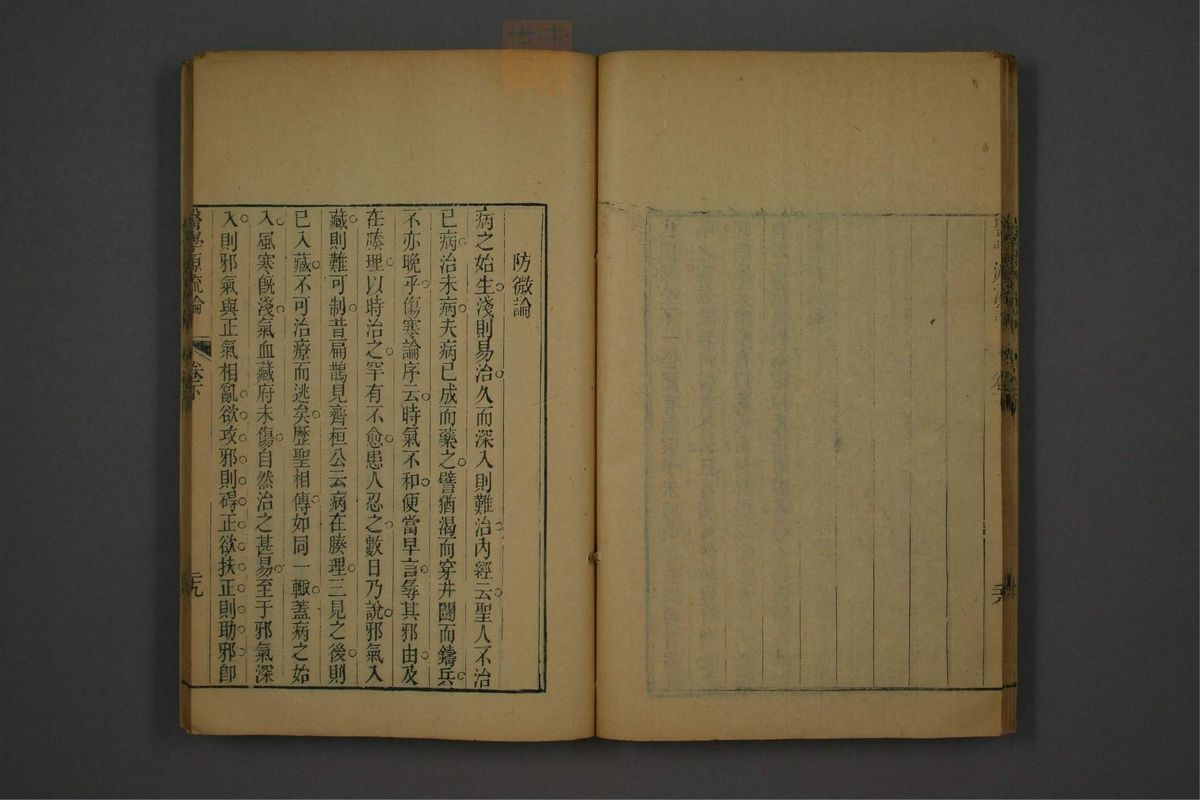 防微論
病之始生淺則易治久而深入則難治內經云聖人不治
已病治未病夫病已成而藥之譬猶渴而穿井鬪而鑄兵
不亦晚乎傷寒論序云時氣不和便當早言尋其邪由及
在腠理以時治之罕有不愈患人忍之數日乃說邪氣入
藏則難可制昔扁鵲見齊桓公云病在腠理三見之後則
已入藏不可治療而逃矣歷聖相傳如同一轍蓋病之始
入風寒旣淺氣血藏府未傷自然治之甚易至于邪氣深
入則邪氣與正氣相亂欲攻邪則碍正欲扶正則助邪卽
醫學源流論 卷下 二九